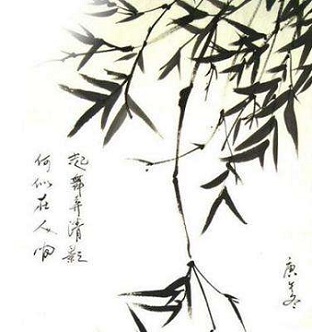 起舞弄清影
何似在人间
庚